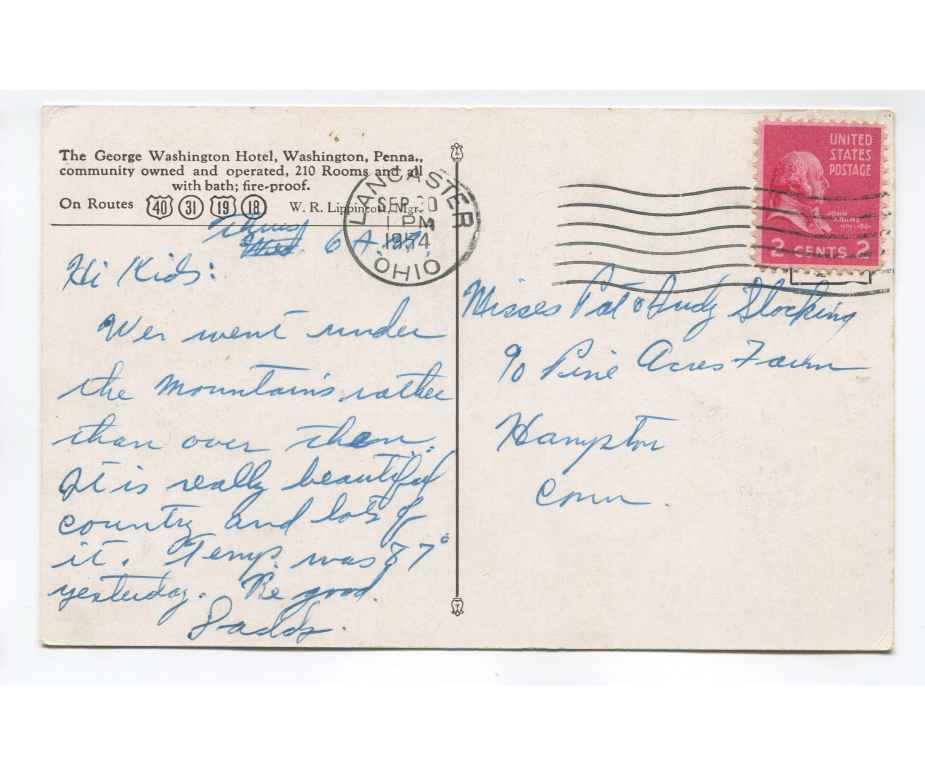 The George Washington Hotel, Washington, Penna.,
community owned and operated, 210 Rooms and all
with bath; fire-proof.
On Routes 40 31 19 18 W. R. Lippincott, Mgr.
Thurs
6 AM
Hi Kids:
We went under
the mountains rather
than over them.
It is really beautiful
country and lots of
it. Temp. was 87°
yesterday. Be good.
Dadds.
LANCASTER
SEP 30
1 PM
1954
OHIO
UNITED
STATES
POSTAGE
JOHN
ADAMS
2 CENTS 2
Misses Pat & Judy Stocking
90 Pine Acres Farm
Hampton
Conn